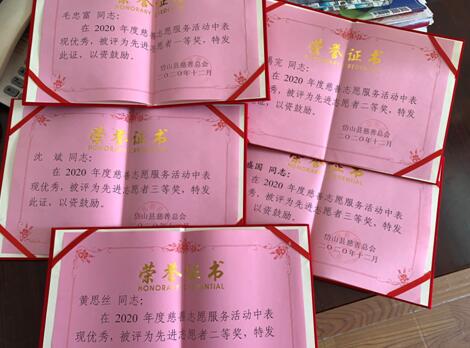 毛忠富 同志：
在 2020 年度慈善志愿服务活动中表
现优秀，被评为先进志愿者一等奖，特发
此证，以资鼓励。
岱山县慈善总会
二〇二〇年十二月
荣誉证书
同志：
在 2020 年度慈善志愿服务活动中表
被评为先进志愿者二等奖，特发
以资鼓励。
岱山县慈善总会
二〇二〇年十二月
荣誉证书
HONORARY CREDENTIAL
沈 斌 同志：
在 2020 年度慈善志愿服务活动中表
现优秀，被评为先进志愿者三等奖，特发
此证，以资鼓励。
岱山县慈善总会
二〇二〇年十二月
荣誉证书
盛国 同志：
在 2020 年度慈善志愿服务活动中表
优秀，被评为先进志愿者三等奖，特发
以资鼓励。
岱山县慈善总会
二〇二〇年十二月
荣誉证书
HONORARY CREDENTIAL
黄思丝 同志：
在 2020 年度慈善志愿服务活动中表
现优秀，被评为先进志愿者二等奖，特发